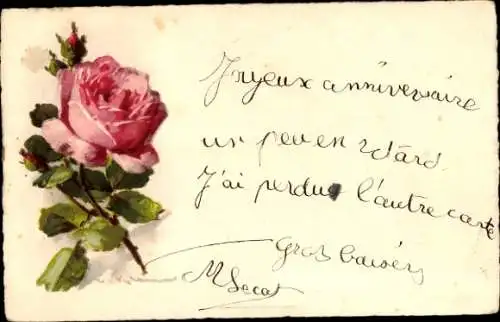 Joyeux anniversaire
un peu en retard
J'ai perdue l'autre carte
Gros baisers
M